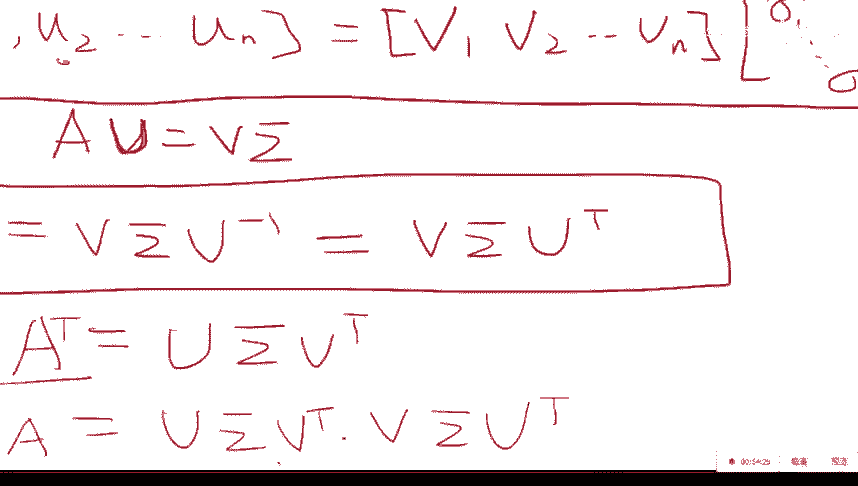 , u₂ ... uₙ} = [V₁ V₂ ... Vₙ] [σ₁ ... σ
A U = V Σ
= V Σ U⁻¹ = V Σ Uᵀ
Aᵀ = U Σ Vᵀ
A = U Σ Vᵀ · V Σ Uᵀ